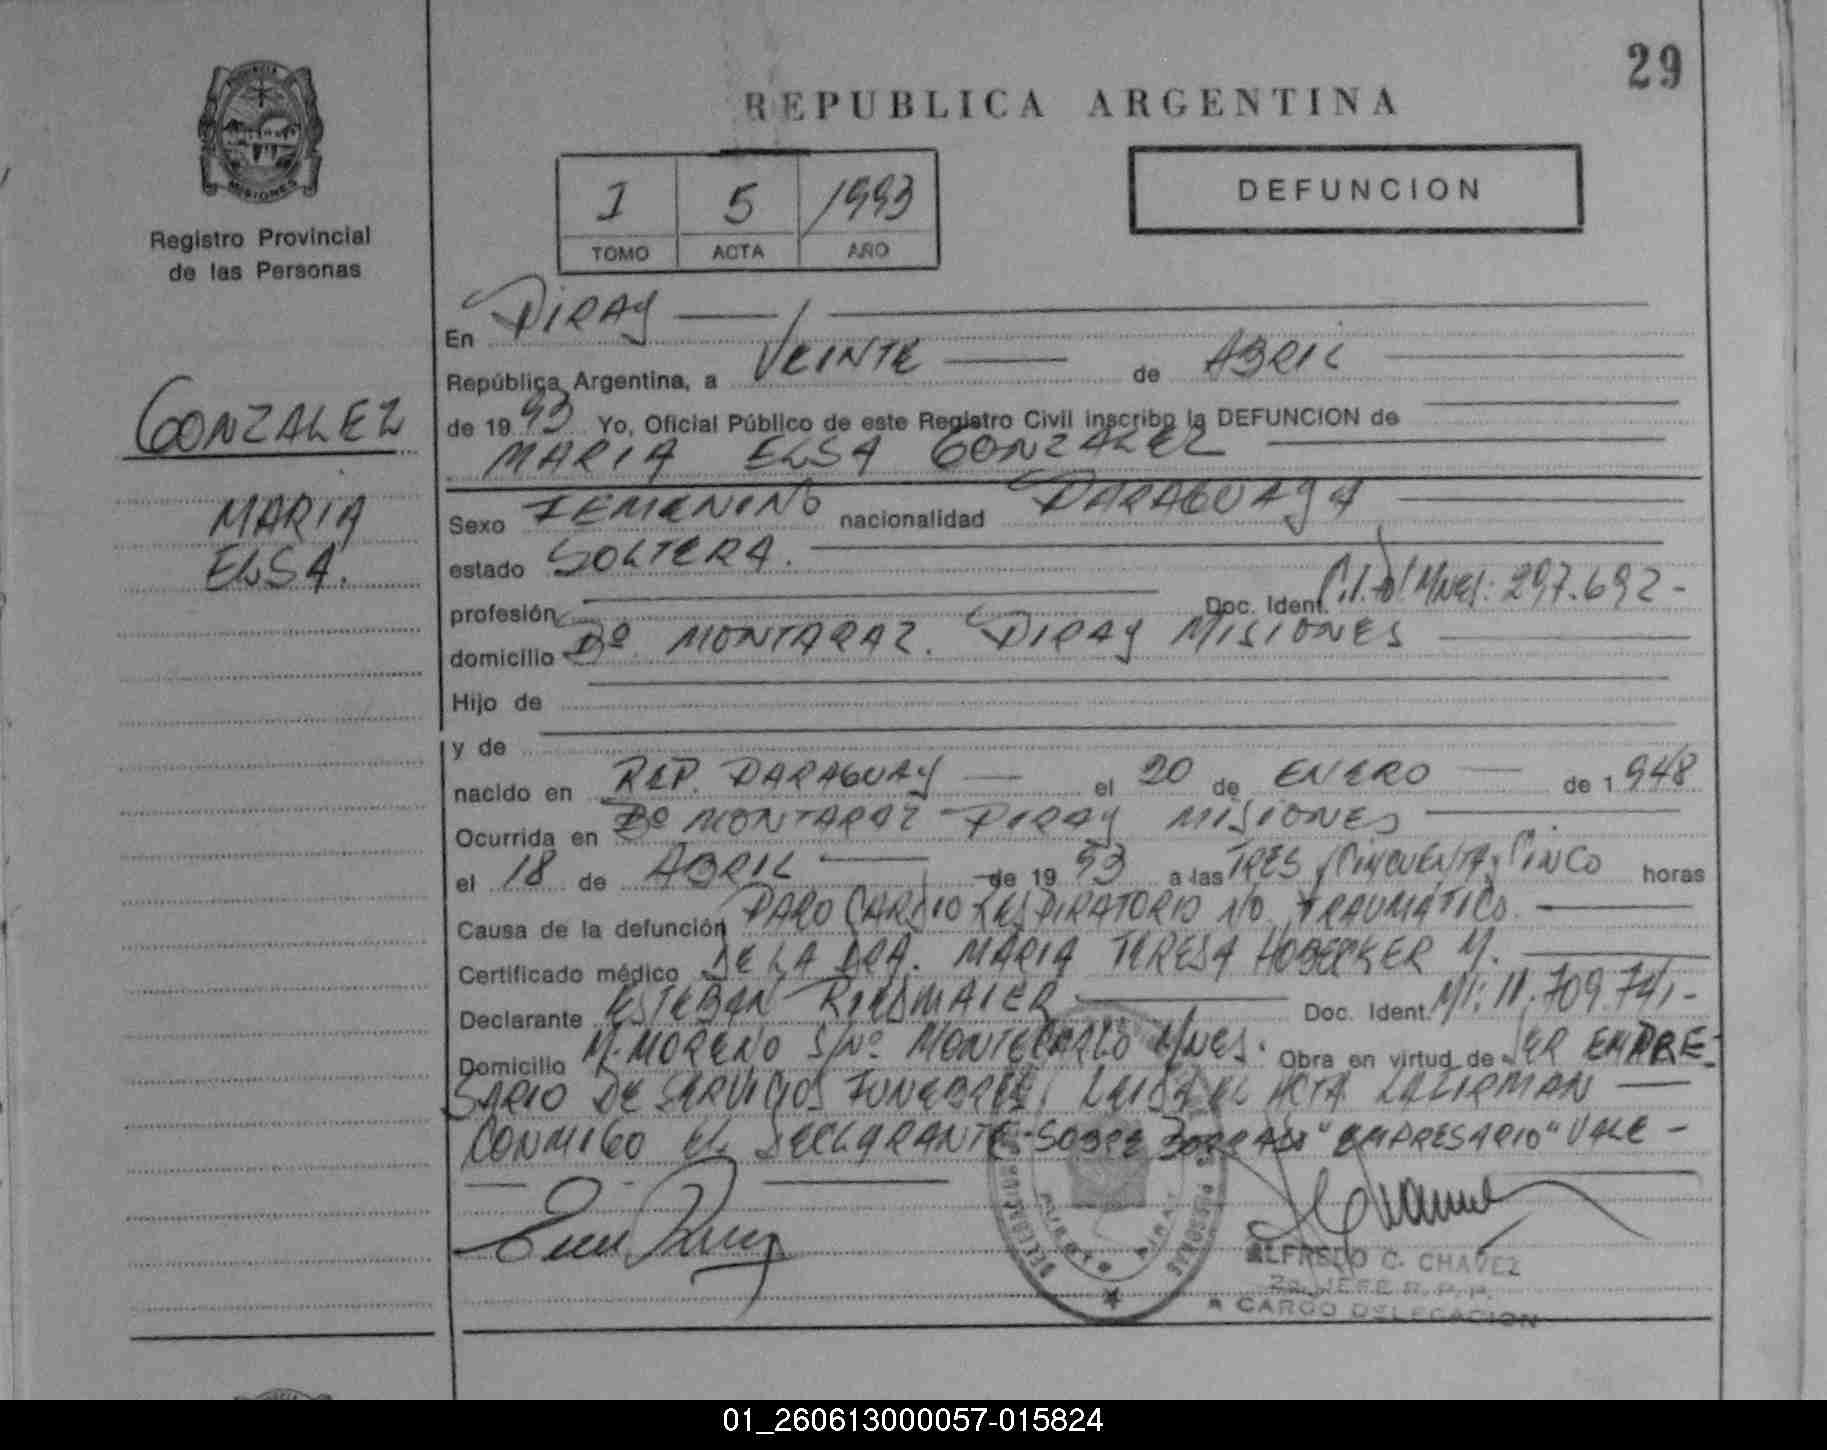 29
PROVINCIA
MISIONES
Registro Provincial
de las Personas
REPUBLICA ARGENTINA
1 5 1993
TOMO ACTA AÑO
DEFUNCION
GONZALEZ
MARIA
ELSA.
En PIRAY
República Argentina, a VEINTE de ABRIL
de 1993 Yo, Oficial Público de este Registro Civil inscribo la DEFUNCION de
MARIA ELSA GONZALEZ
Sexo FEMENINO nacionalidad PARAGUAYA
estado SOLTERA.
profesión Doc. Ident. 297.692-
domicilio Bº MONTARAZ. PIRAY MISIONES
Hijo de
y de
nacido en REP. PARAGUAY el 20 de ENERO de 1948
Ocurrida en Bº MONTARAZ - PIRAY MISIONES
el 18 de ABRIL de 1993 a las TRES y CINCUENTA y CINCO horas
Causa de la defunción PARO CARDIO RESPIRATORIO NO TRAUMATICO.
Certificado médico DE LA DRA. MARIA TERESA HOBECKER M.
Declarante ESTEBAN RIESMAIER Doc. Ident. MI: 11.709.741-
Domicilio M. MORENO S/Nº MONTECARLO Mnes. Obra en virtud de SER EMPRE-
SARIO DE SERVICIOS FUNEBRES, LEIDA EL ACTA LA FIRMAN
CONMIGO EL DECLARANTE-SOBRE BORRADO "EMPRESARIO" VALE -
ALFREDO C. CHAVEZ
2º JEFE R.P.P.
A CARGO DELEGACION
01_260613000057-015824